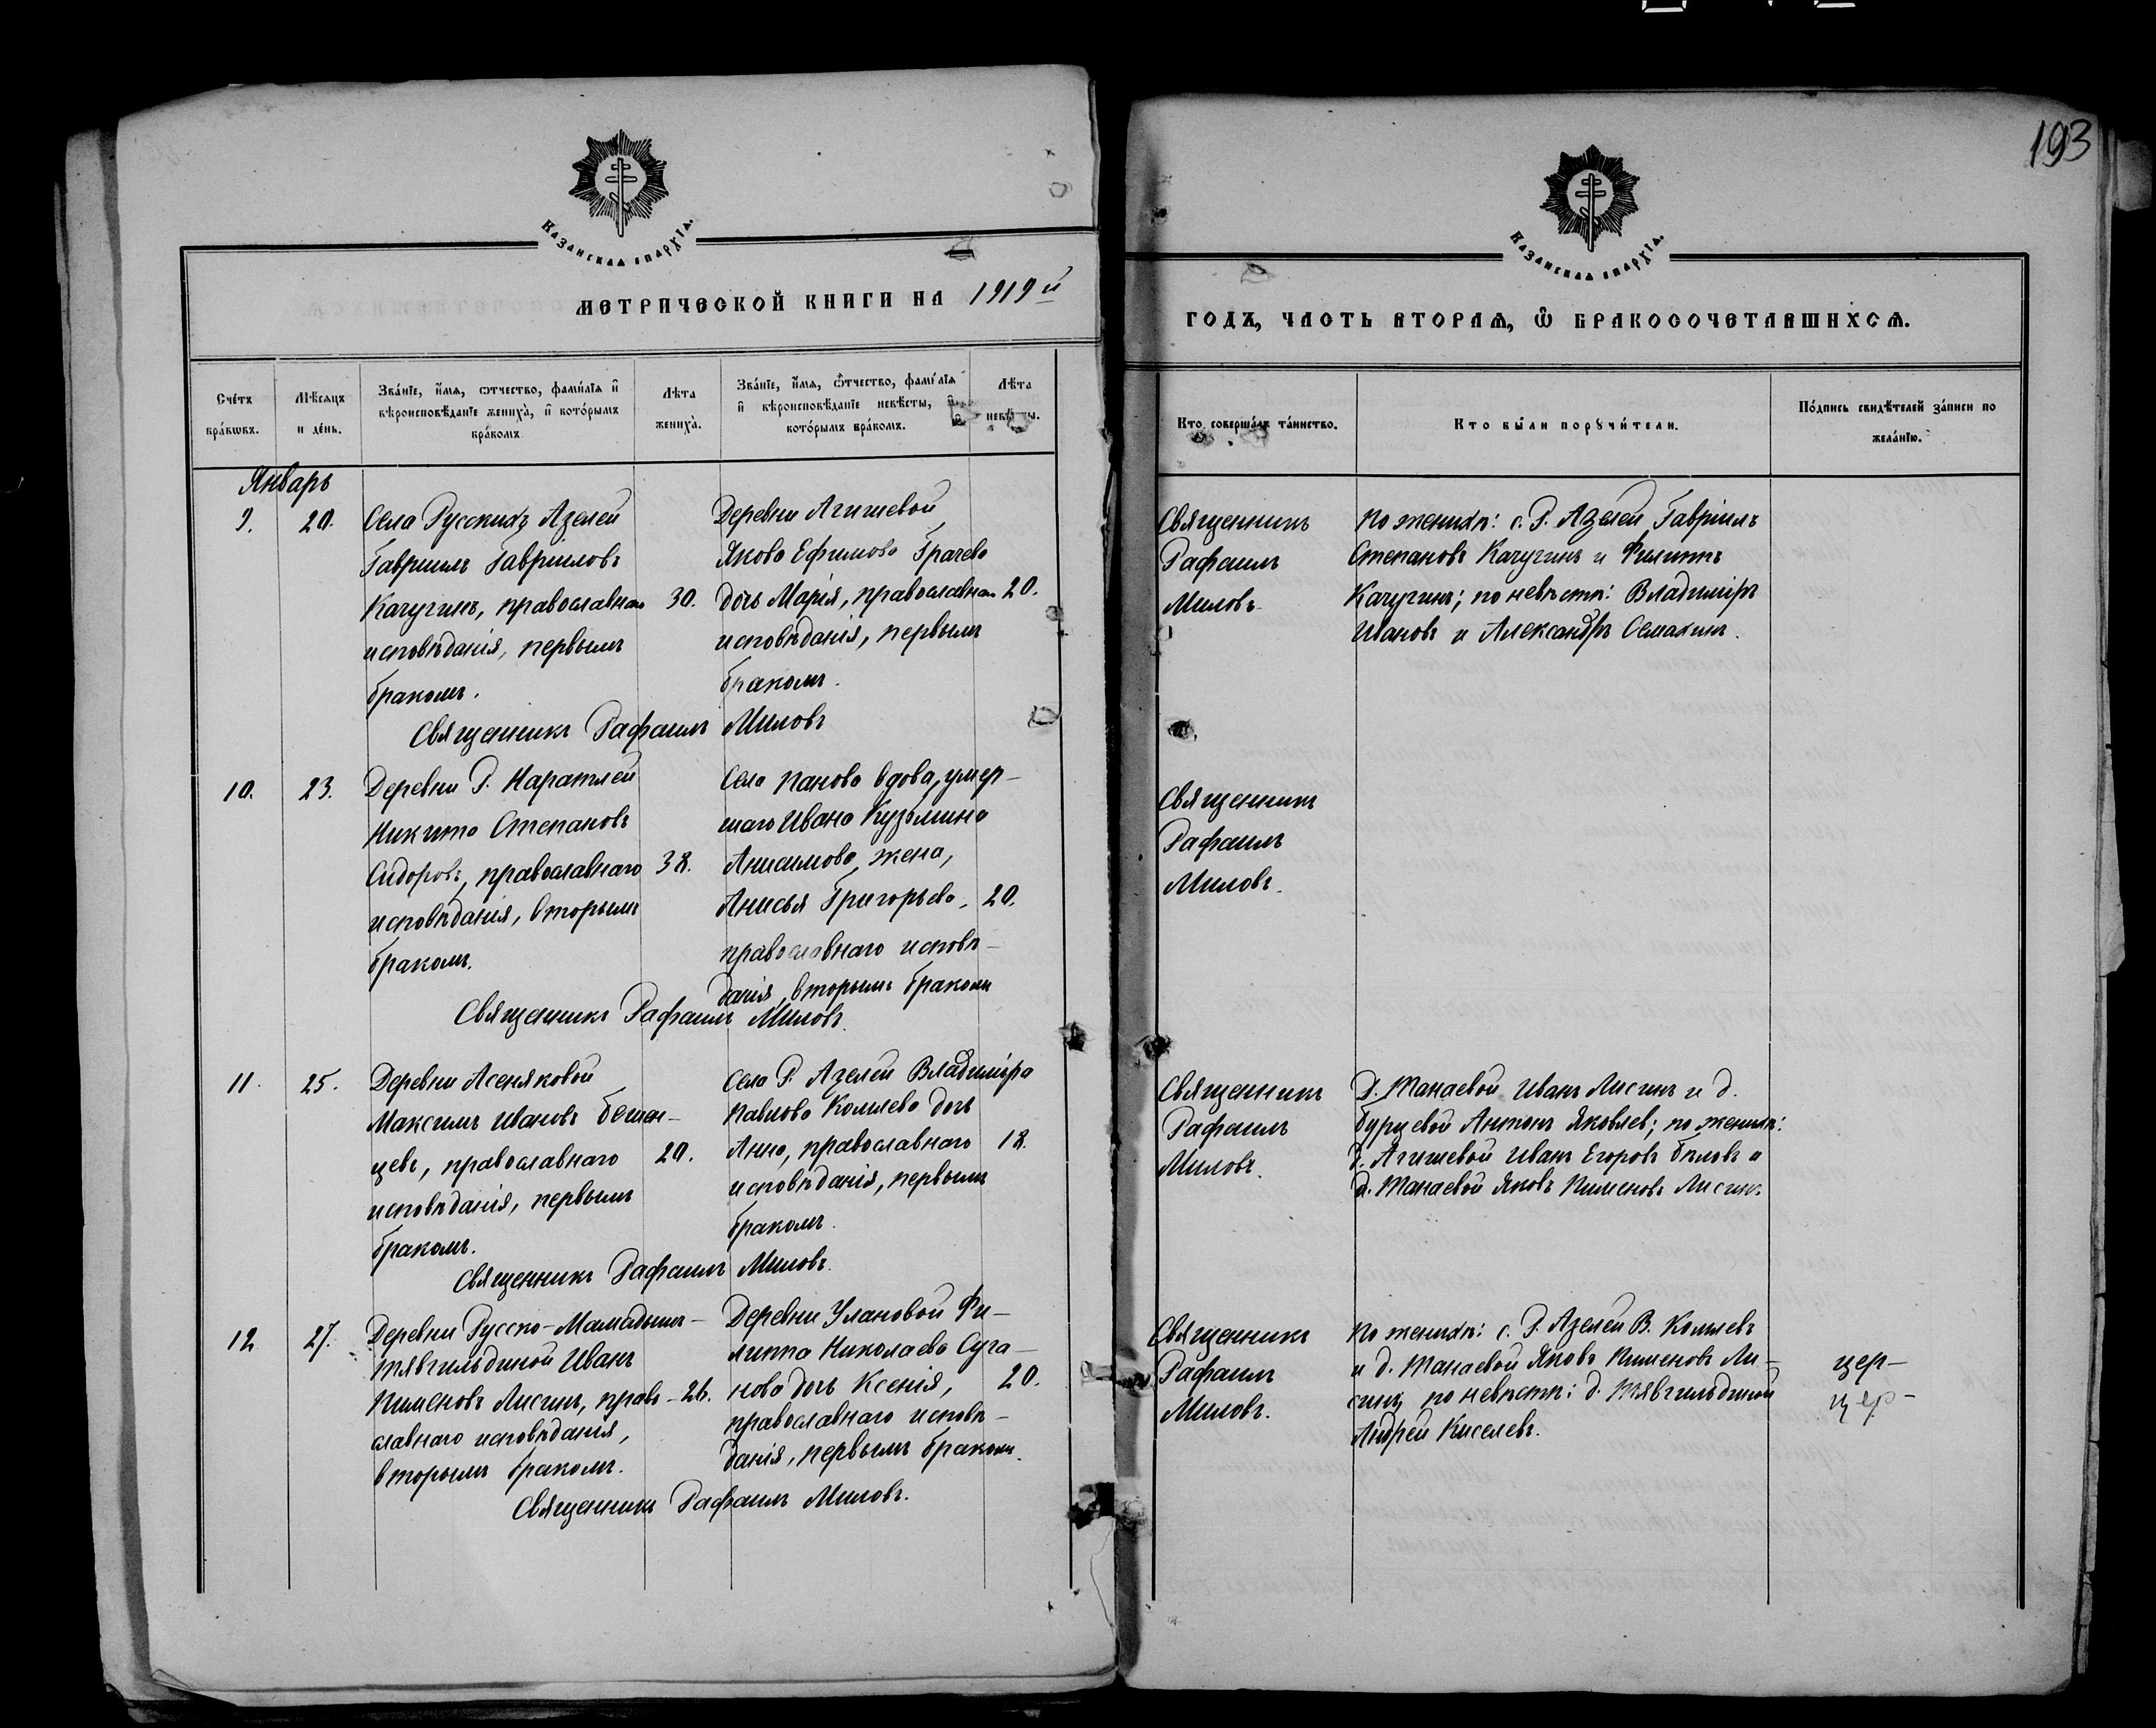 193
Казанская епархїа.
Казанская епархїа.
Метрической книги на 1919й
годъ, часть вторая, ѡ бракосочетавшихся.
Сче́тъ бра́кѡвъ.
Мѣ́сяцъ и де́нь.
Зва́нїе, и҆́мя, ѻтчество, фами́лїя и҆ вѣроисповѣ́данїе жениха̀, и҆ кото́рымъ бра́комъ
Лѣ́та жениха̀.
Зва́нїе, и҆́мя, ѻтчество, фами́лїя и҆ вѣроисповѣ́данїе невѣ́сты, и҆ кото́рымъ бра́комъ.
Лѣ́та невѣ́сты.
Кто соверша́лъ та́инство.
Кто бы́ли порꙋчи́тели.
По́дпись свидѣ́телей за́писи по жела́нїю.
Январь
9.
20.
Села Русскихъ Азелей
Гавріилъ Гавріиловъ
Качугинъ, православнаго
исповѣданія, первымъ
бракомъ.
30.
Деревни Агишевой
Якова Ефимова Грачева
дочь Марія, православнаго
исповѣданія, первымъ
бракомъ.
20.
Священникъ
Рафаилъ
Миловъ
По женихѣ: с. Р. Азелей Гавріилъ
Степановъ Качугинъ и Филиппъ
Качугинъ; по невѣстѣ: Владиміръ
Ивановъ и Александръ Семахин.
Священникъ Рафаилъ Миловъ
10.
23.
Деревни Р. Наратлей
Никита Степановъ
Сидоровъ, православнаго
исповѣданія, вторымъ
бракомъ.
38.
Села Паново вдова, умер-
шаго Ивана Кузьмина
Анисимова жена,
Анисья Григорьева,
православнаго исповѣ-
данія, вторымъ бракомъ
20.
Священникъ
Рафаилъ
Миловъ.
Священникъ Рафаилъ Миловъ.
11.
25.
Деревни Асеняковой
Максимъ Ивановъ Бешен-
цевъ, православнаго
исповѣданія, первымъ
бракомъ.
20.
Села Р. Азелей Владиміра
Павлова Комлева дочь
Анна, православнаго
исповѣданія, первымъ
бракомъ.
18.
Священникъ
Рафаилъ
Миловъ.
Д. Танаевой Иванъ Лисинъ и д.
Бурцевой Антонъ Яковлев; по женихѣ:
д. Агишевой Иванъ Егоровъ Бѣловъ и
д. Танаевой Яковъ Пименовъ Лисинъ
Священникъ Рафаилъ Миловъ.
12
27.
Деревни Русско-Мамадыш-
тявгильдиной Иванъ
Пименовъ Лисинъ, право-
славнаго исповѣданія,
вторымъ бракомъ.
26.
Деревни Улановой Фи-
липпа Николаева Суга-
нова дочь Ксенія,
православнаго исповѣ-
данія, первымъ бракомъ.
20.
Священникъ
Рафаилъ
Миловъ.
По женихѣ: с. Р. Азелей В. Комлевъ
и д. Танаевой Яковъ Пименовъ Ли-
синъ, по невѣстѣ: д. Тявгильдиной
Андрей Киселевъ.
цер-
цер-
Священникъ Рафаилъ Миловъ.